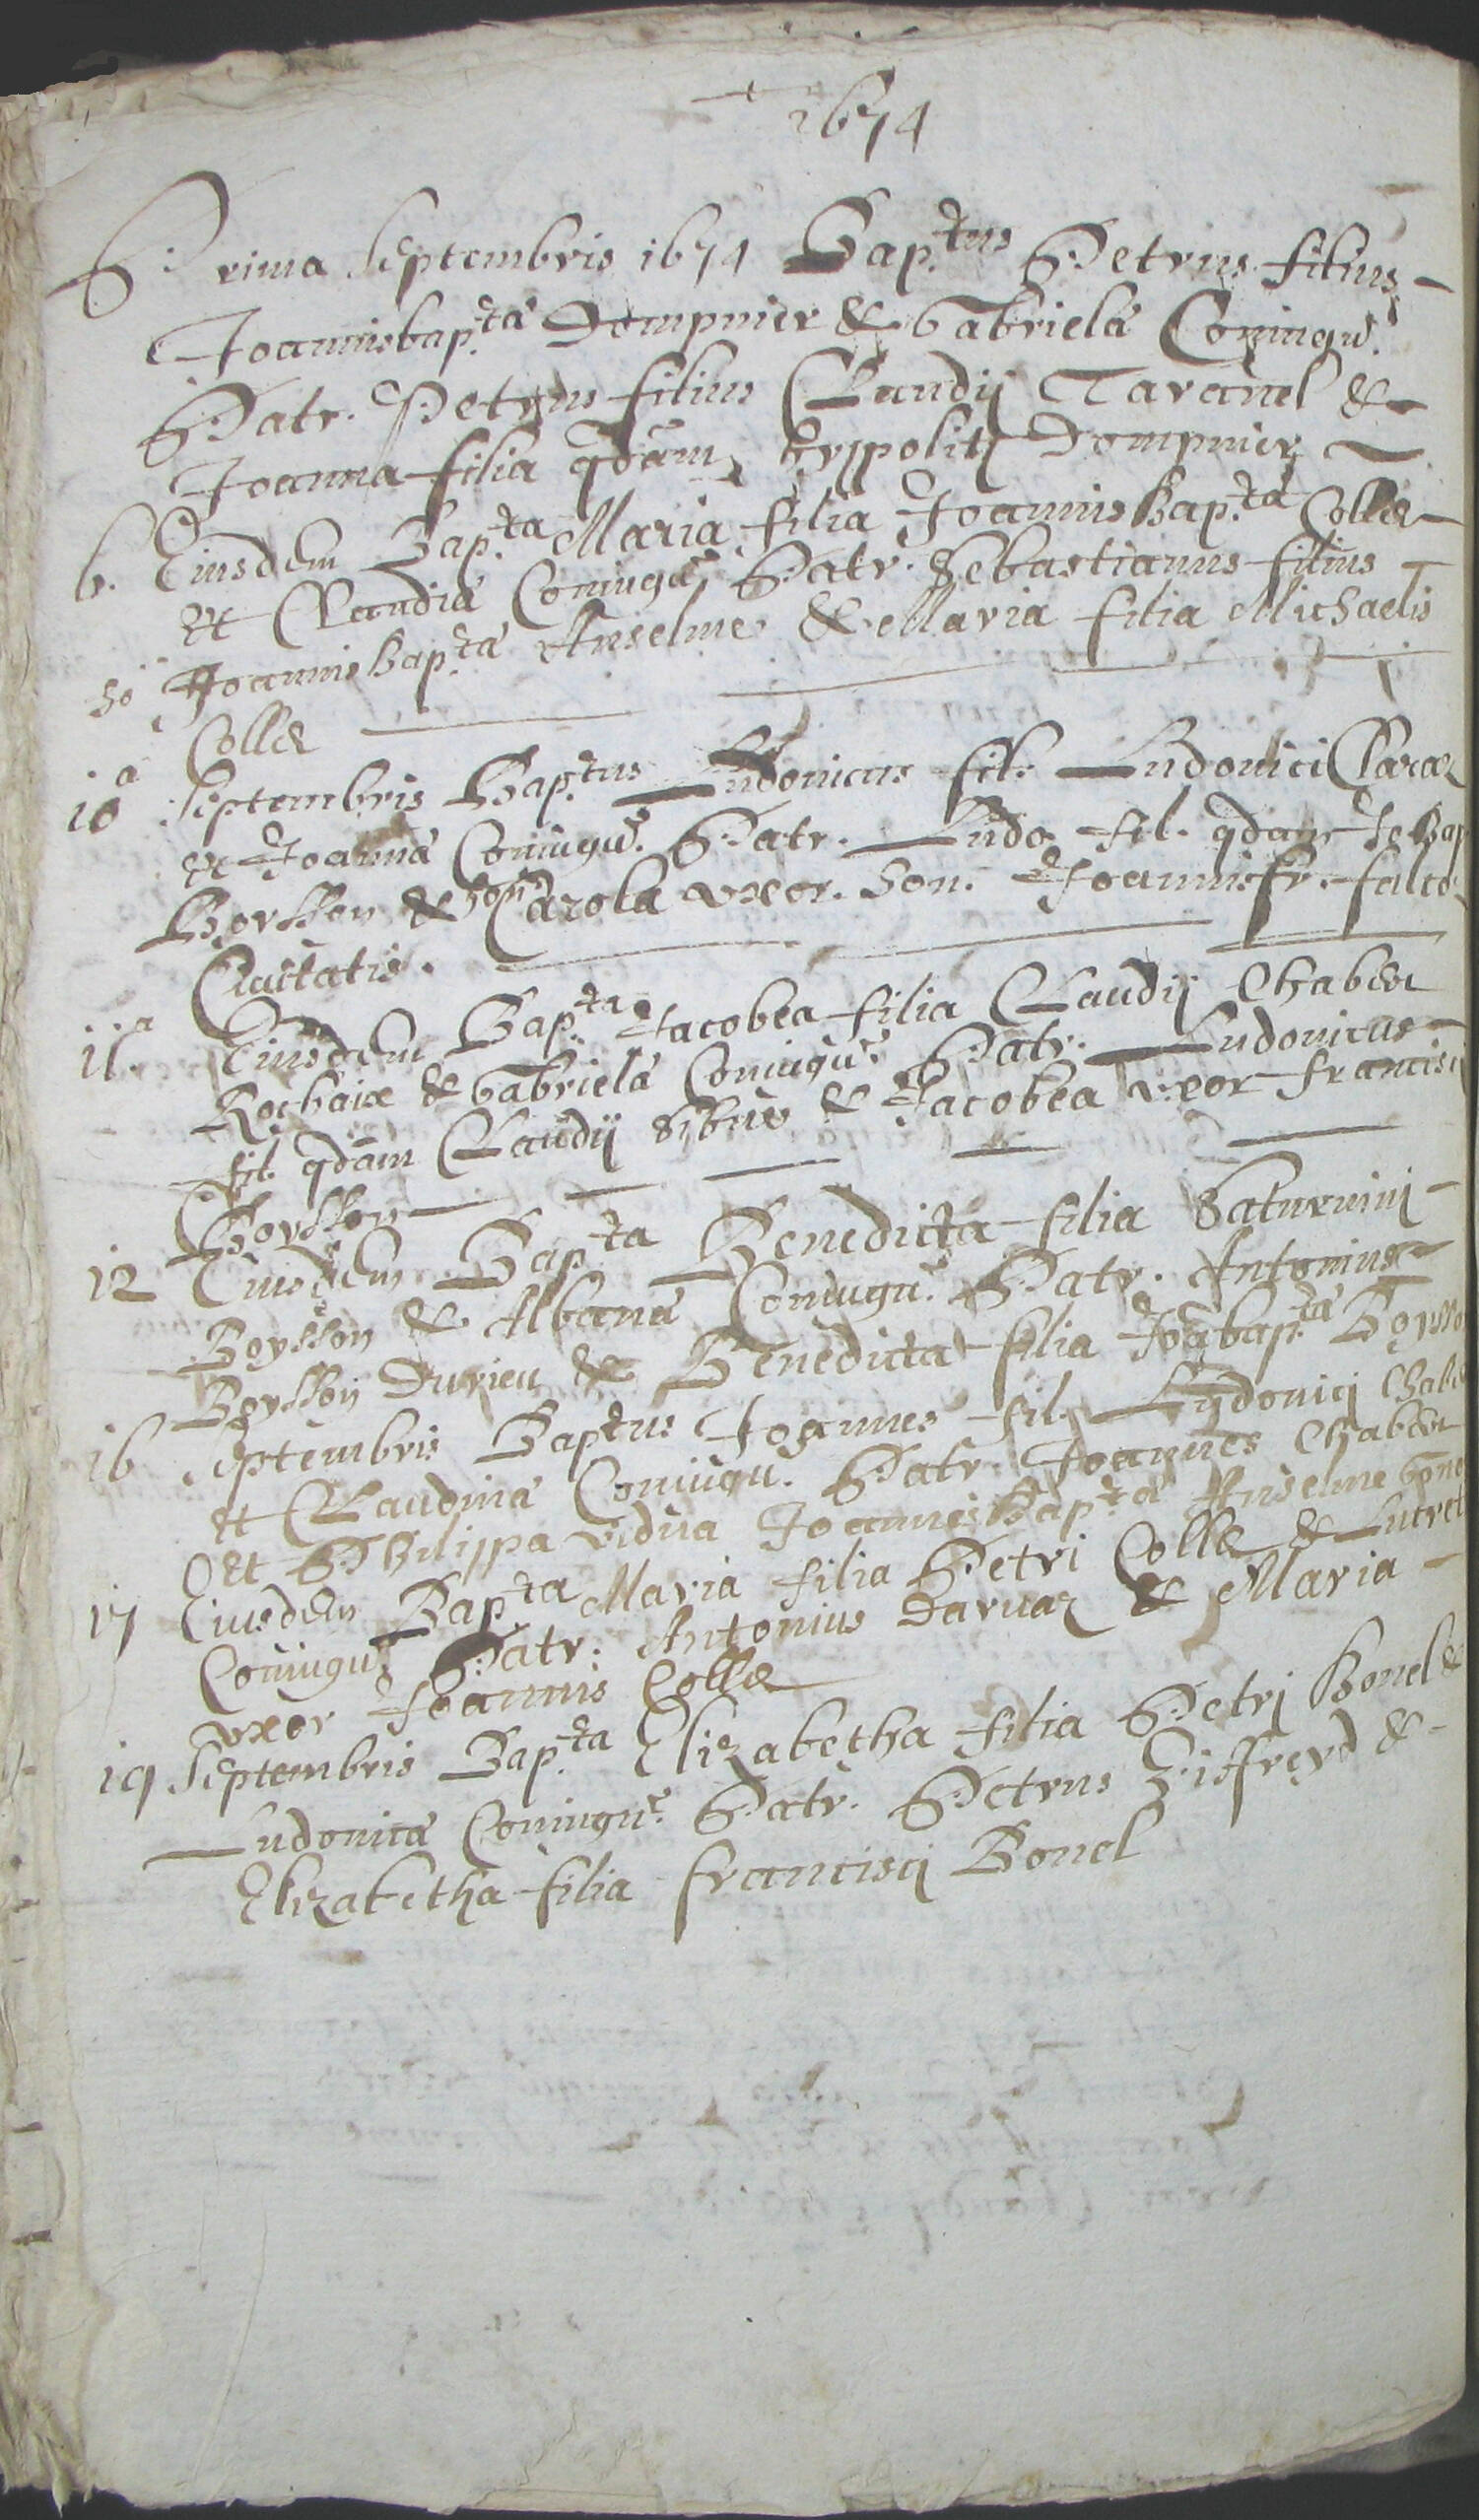 1674
Prima Septembris 1674 Bap.tus Petrus filius
Joannisbap.tæ Dompnier & Gabrielæ Coniugu.
Patr. Petrus filius Claudij Taravel &
Joanna filia qdam hyppoliti Dompnier
6. Eiusdem Bap.ta Maria filia Joannisbap.tæ Collet
et Claudiæ Coniugu. Patr. Sebastianus filius
Joannisbap.tæ Anselme & Maria filia Michaelis
Collet
10a Septembris Bap.tus Ludovicus fil. Ludovici Claraz
et Joannæ Coniugu. Patr. Ludo. fil. qdam Jo Bap
Boysson & hon. Carola uxor hon. Joannisfr. falco
Civitatis.
11.a Eiusdem Bap.ta Jacobea filia Claudij Chabert
Rochaix & Gabrielæ Coniugu. Patr. Ludovicus
fil. qdam Claudij Sibue & Jacobea uxor francisci
Boysson
12 Eiusdem Bap.ta Benedicta filia Saturnini
Boysson & Albanæ Coniugu. Patr. Antonius
Boysson Durieu & Benedicta filia Joabap.tæ Boysso
16 Septembris Baptus Joannes fil. Ludovici Chabe
et Claudinæ Coniugu. Patr. Joannes Chabert
Et Philippa vidua Joannisbap.tæ Anselme
17 Eiusdem Bap.ta Maria filia Petri Collet & Lucret
Coniugu. Patr. Antonius Darvaz & Maria
uxor Joannis Collet
19 Septembris Bap.ta Elizabetha filia Petri Bonel &
Ludovicæ Coniugu. Patr. Petrus Ziffreyd &
Elizabetha filia francisci Bonel